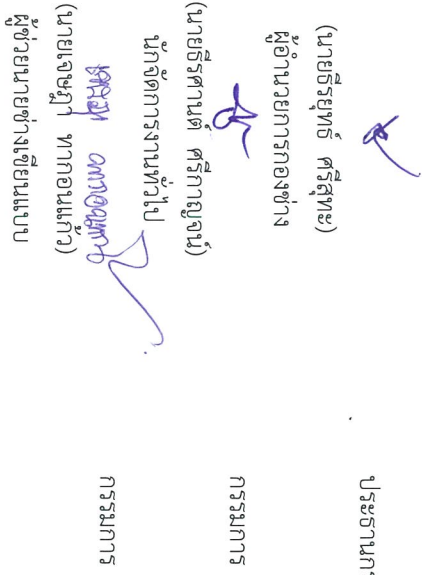 ประธานก
(นายธีรยุทธ์ ศรีสุทะ)
ผู้อำนวยการกองช่าง
กรรมการ
(นายธีรศานต์ ศรีกาญจน์)
นักจัดการงานทั่วไป
กรรมการ
(นายเจษฎา ทากอนแก้ว)
ผู้ช่วยนายช่างเขียนแบบ